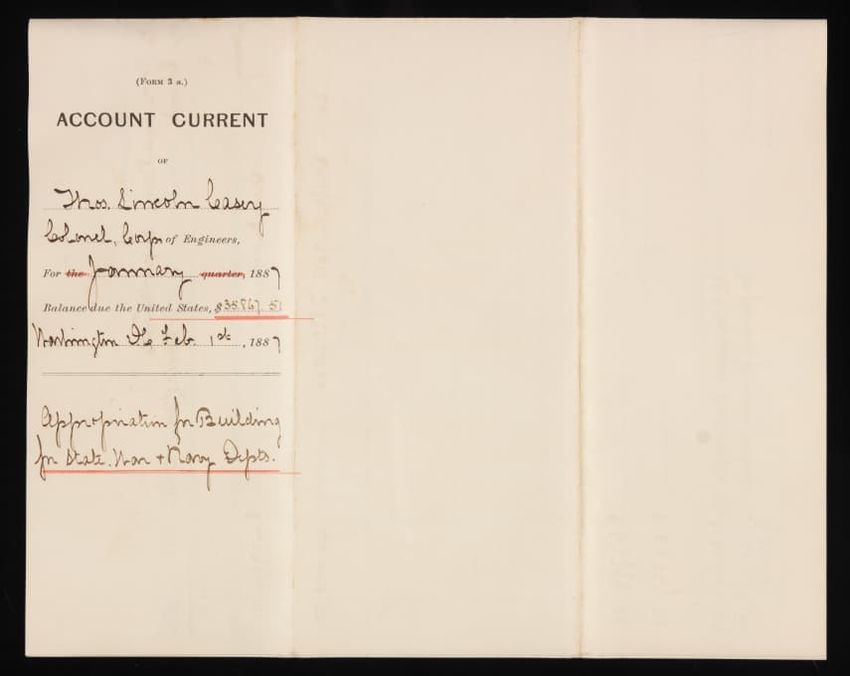 (Form 3 a.)
ACCOUNT CURRENT
OF
Thos. Lincoln Casey
Colonel, Corps of Engineers,
For the January quarter, 1887
Balance due the United States, $35867.51
Washington DC Feb. 1st, 1887
Appropriation for Building
for State, War + Navy Depts.